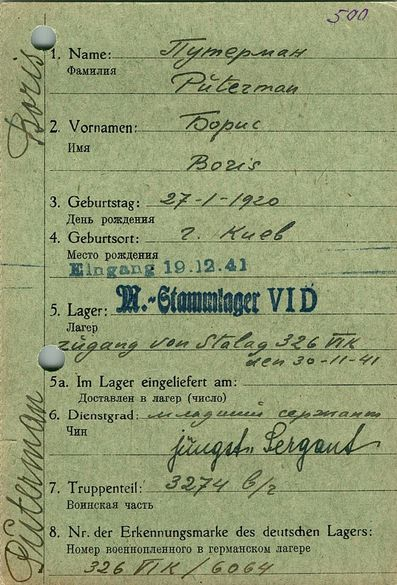 500
1. Name: Путерман
Фамилия
Püterman
2. Vornamen: Борис
Имя
Boris
3. Geburtstag: 27-1-1920
День рождения
4. Geburtsort: г. Киев
Место рождения
Eingang 19.12.41
5. Lager: M.-Stammlager VI D
Лагер
Zugang von Stalag 326 VI K
den 30-11-41
5a. Im Lager eingeliefert am:
Доставлен в лагер (число)
6. Dienstgrad: младший сержант
Чин
jüngst. Sergant
7. Truppenteil: 3274 в/г
Воинская часть
8. Nr. der Erkennungsmarke des deutschen Lagers:
Номер военнопленного в германском лагере
326 VI K/6064
Püterman Boris